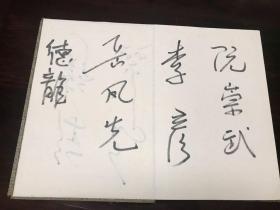 阮崇武
李彦
岳凤先
德龍